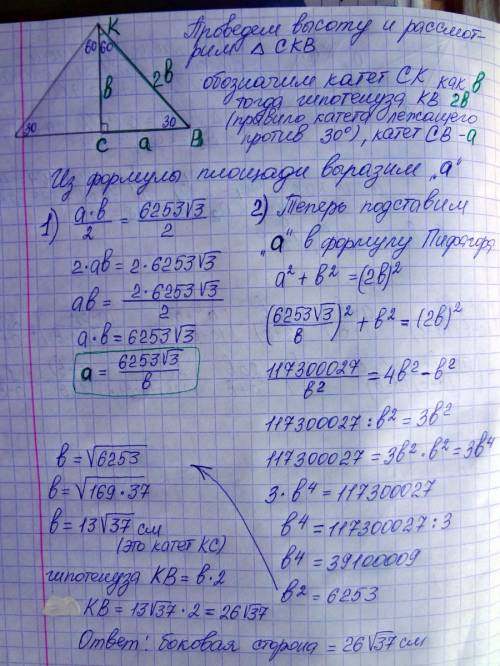 K
60 60
в
2в
30
30
C
a
B
Проведем высоту и рассмот-
рим △ СКВ
обозначим катет СК как в
тогда гипотенуза КВ 2в
(правило катета лежащего
против 30°), катет СВ-а
Из формулы площади выразим „а"
1) a·в/2 = 6253√3/2
2·aв = 2·6253√3
aв = 2·6253√3/2
a·в = 6253√3
a = 6253√3/в
2) Теперь подставим
„а" в формулу Пифагора
a² + в² = (2в)²
(6253√3/в)² + в² = (2в)²
117300027/в² = 4в² - в²
117300027 : в² = 3в²
117300027 = 3в²·в² = 3в⁴
3·в⁴ = 117300027
в⁴ = 117300027 : 3
в⁴ = 39100009
в² = 6253
в = √6253
в = √169·37
в = 13√37 см
(это катет КС)
гипотенуза КВ = в·2
КВ = 13√37·2 = 26√37
Ответ: боковая сторона = 26√37 см